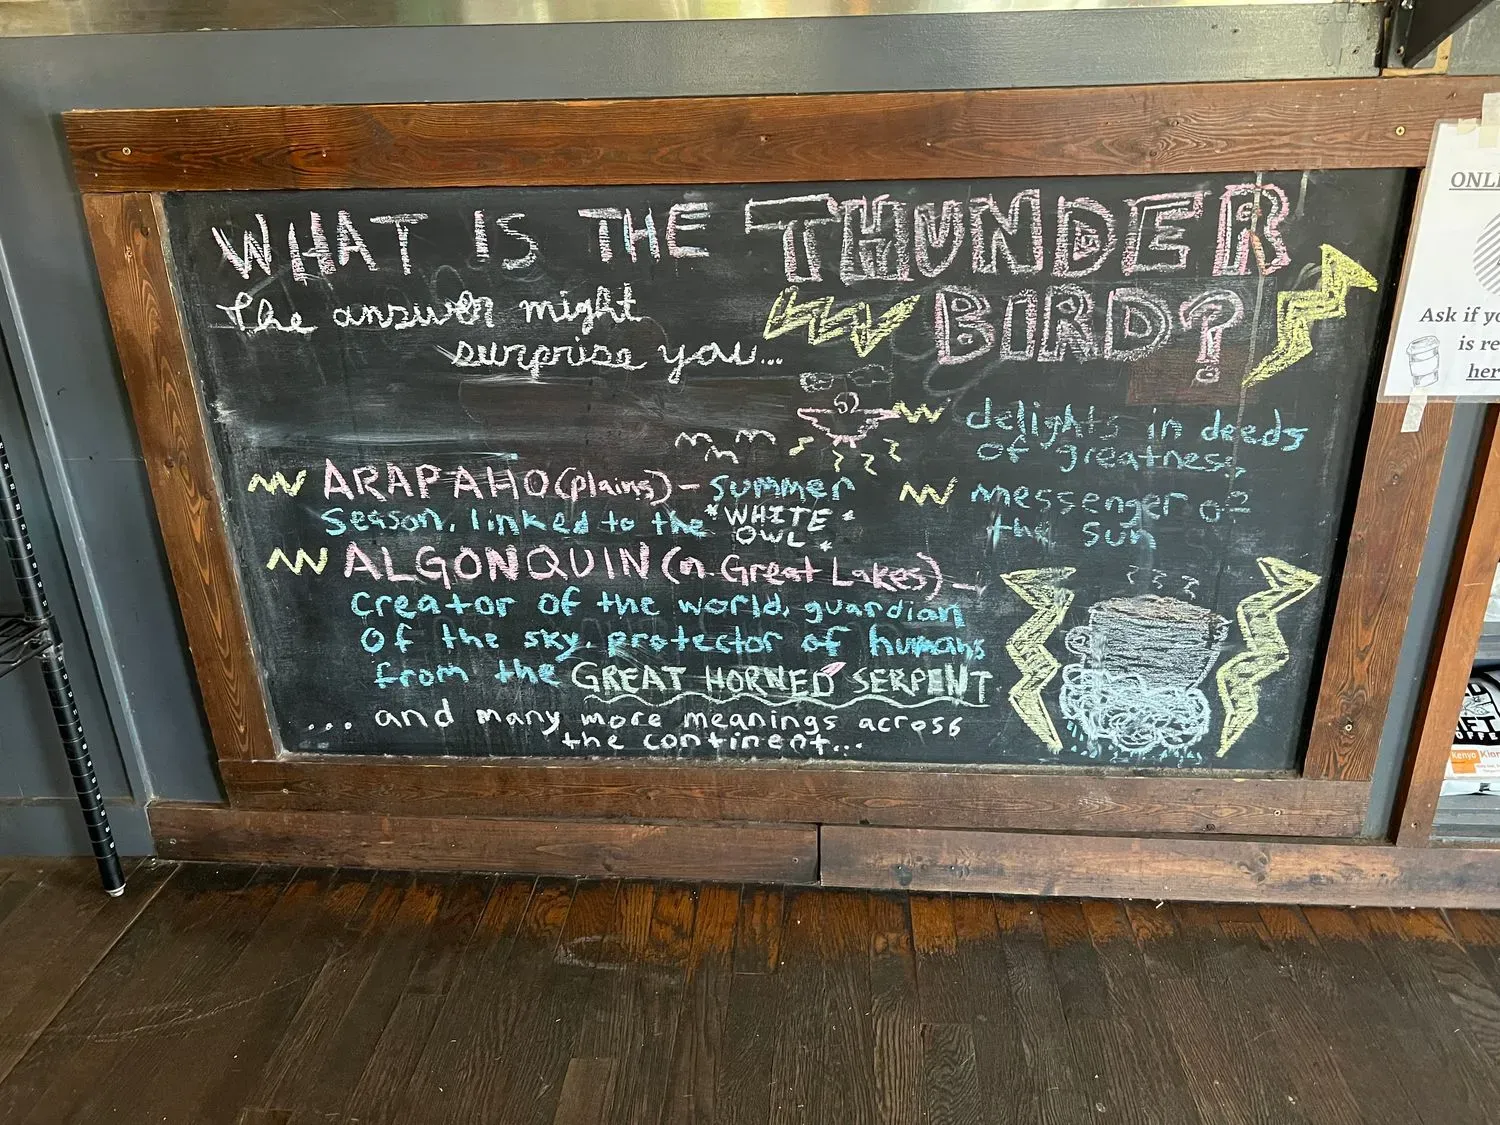 WHAT IS THE THUNDER
BIRD?
The answer might
surprise you...
ARAPAHO (plains) - summer
season, linked to the *WHITE
OWL*
ALGONQUIN (n. Great Lakes) -
creator of the world, guardian
of the sky, protector of humans
from the GREAT HORNED SERPENT
... and many more meanings across
the continent...
delights in deeds
of greatness
messenger of
the sun
ONL
Ask if yo
is re
her
Kenya Kia